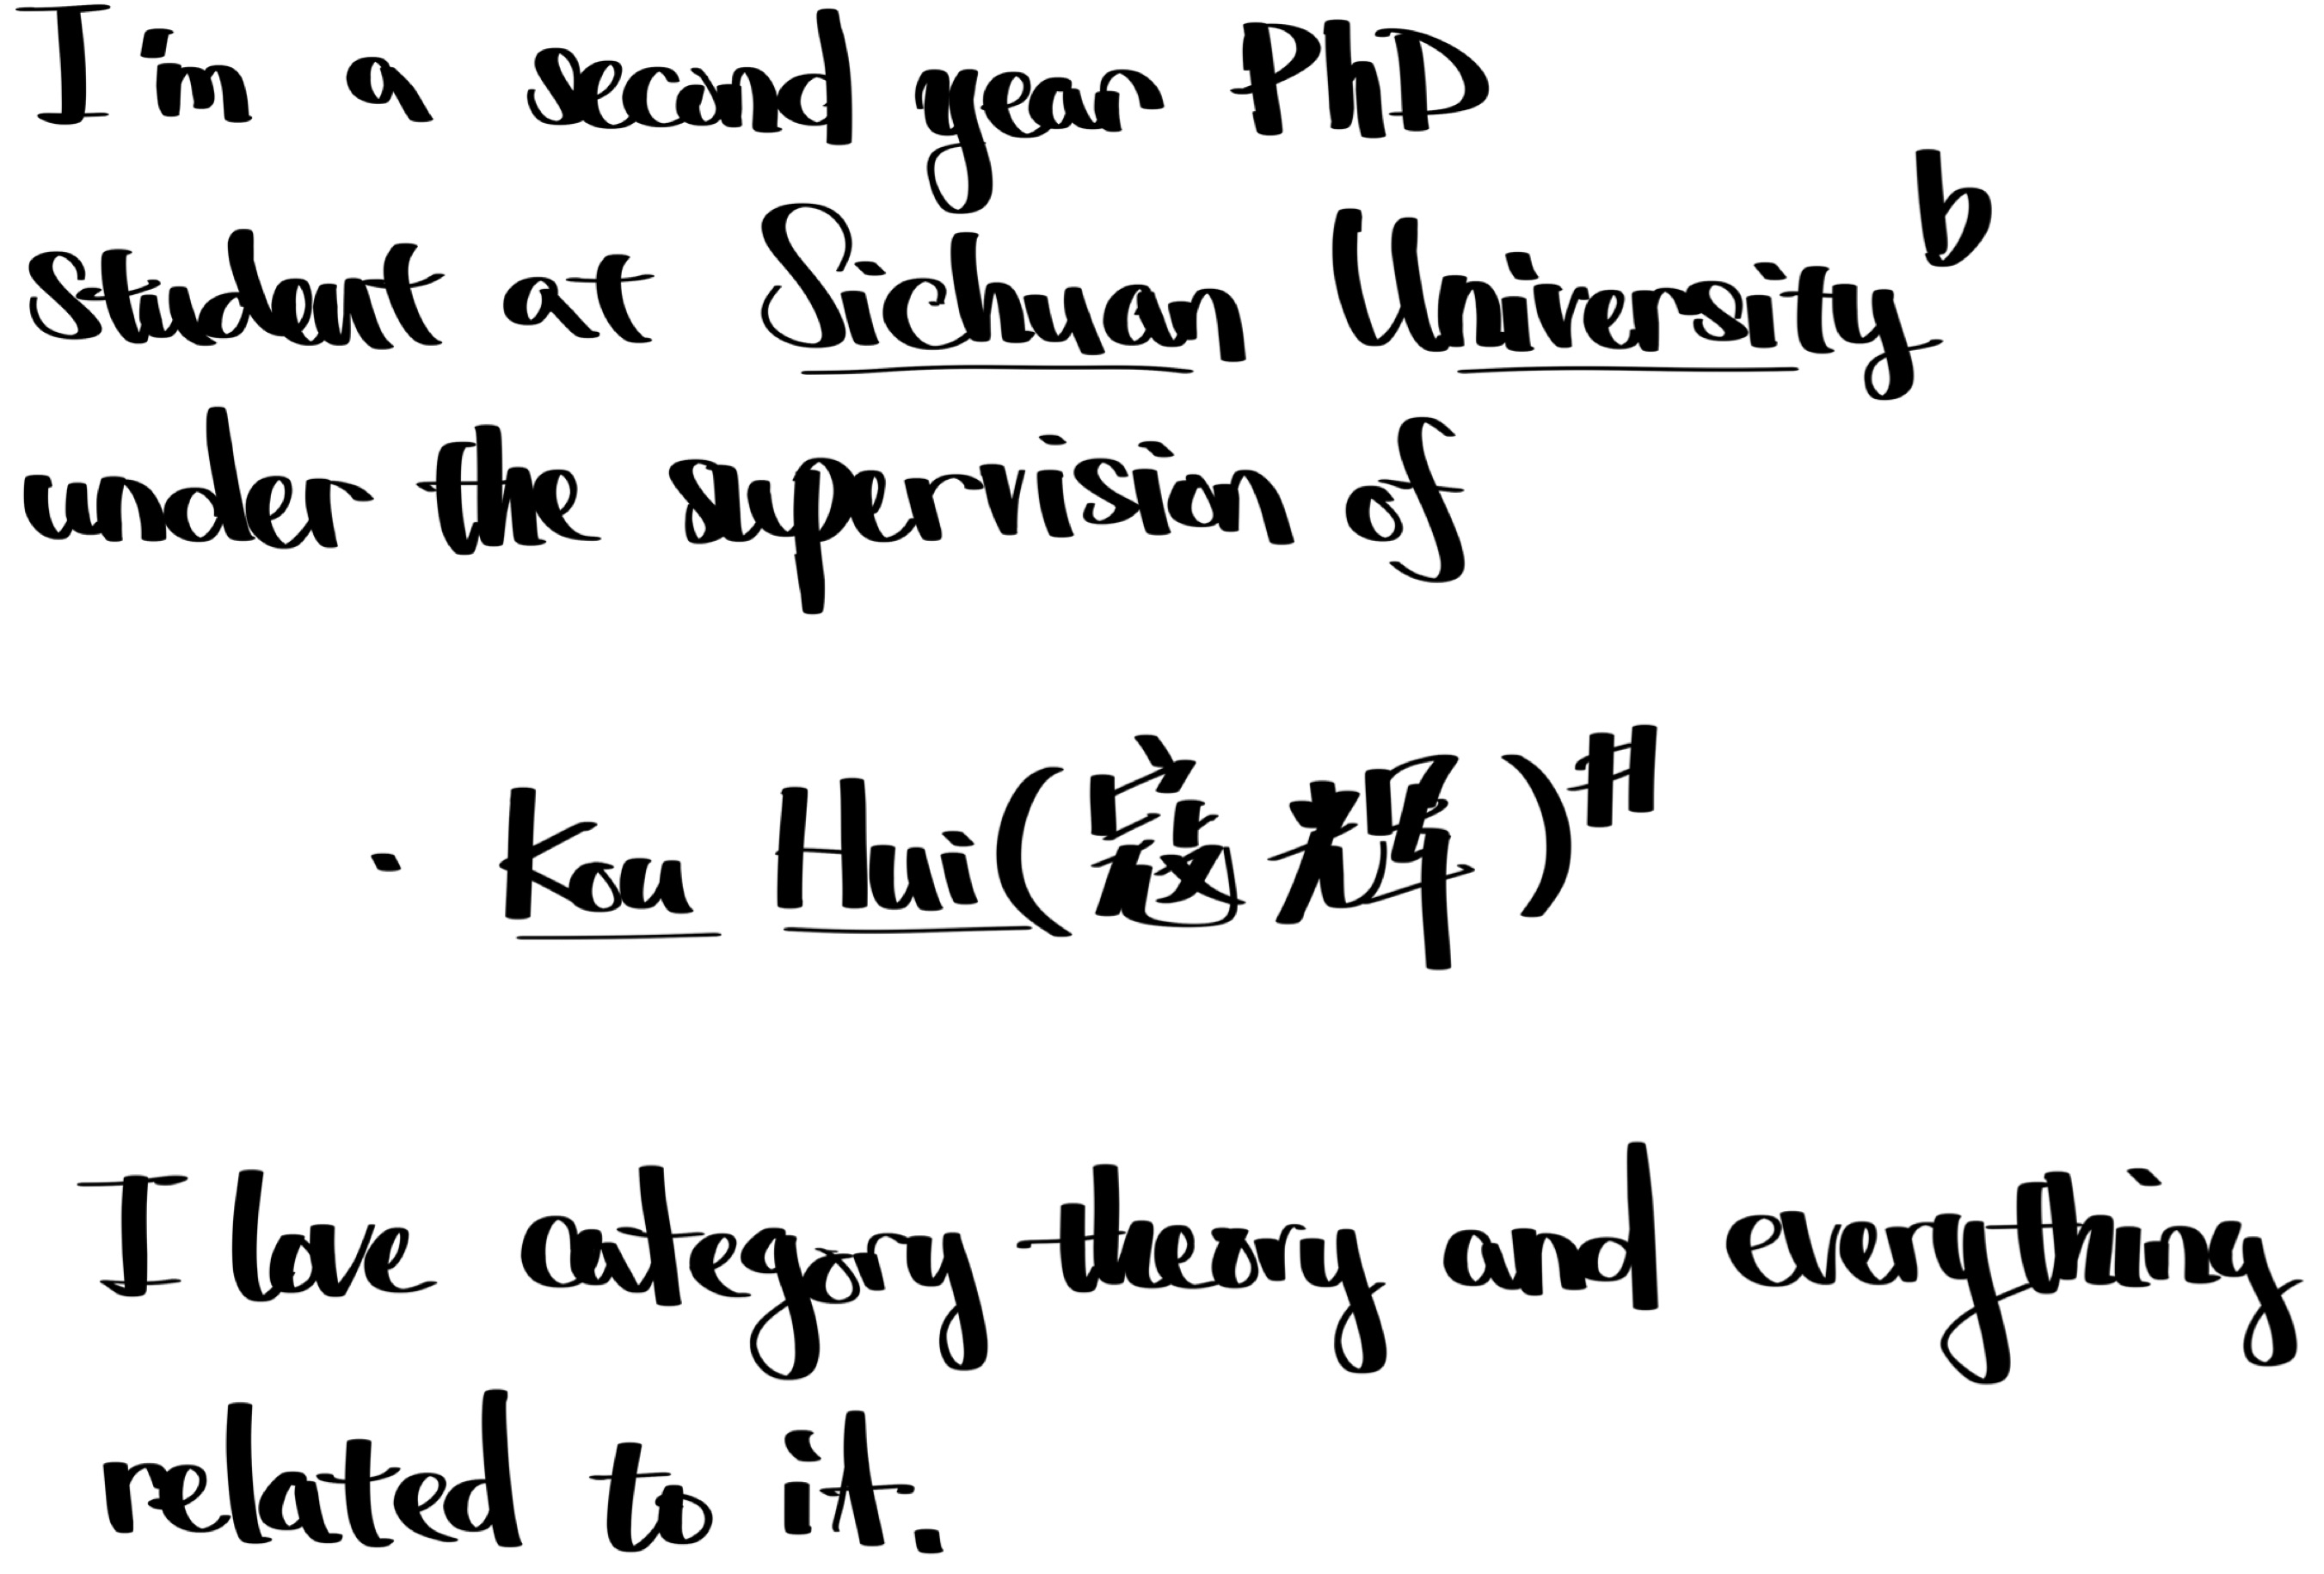 I'm a second year PhD
student at Sichuan University b
under the supervision of
· Kou Hui (寇辉)#
I love category theory and everything
related to it.